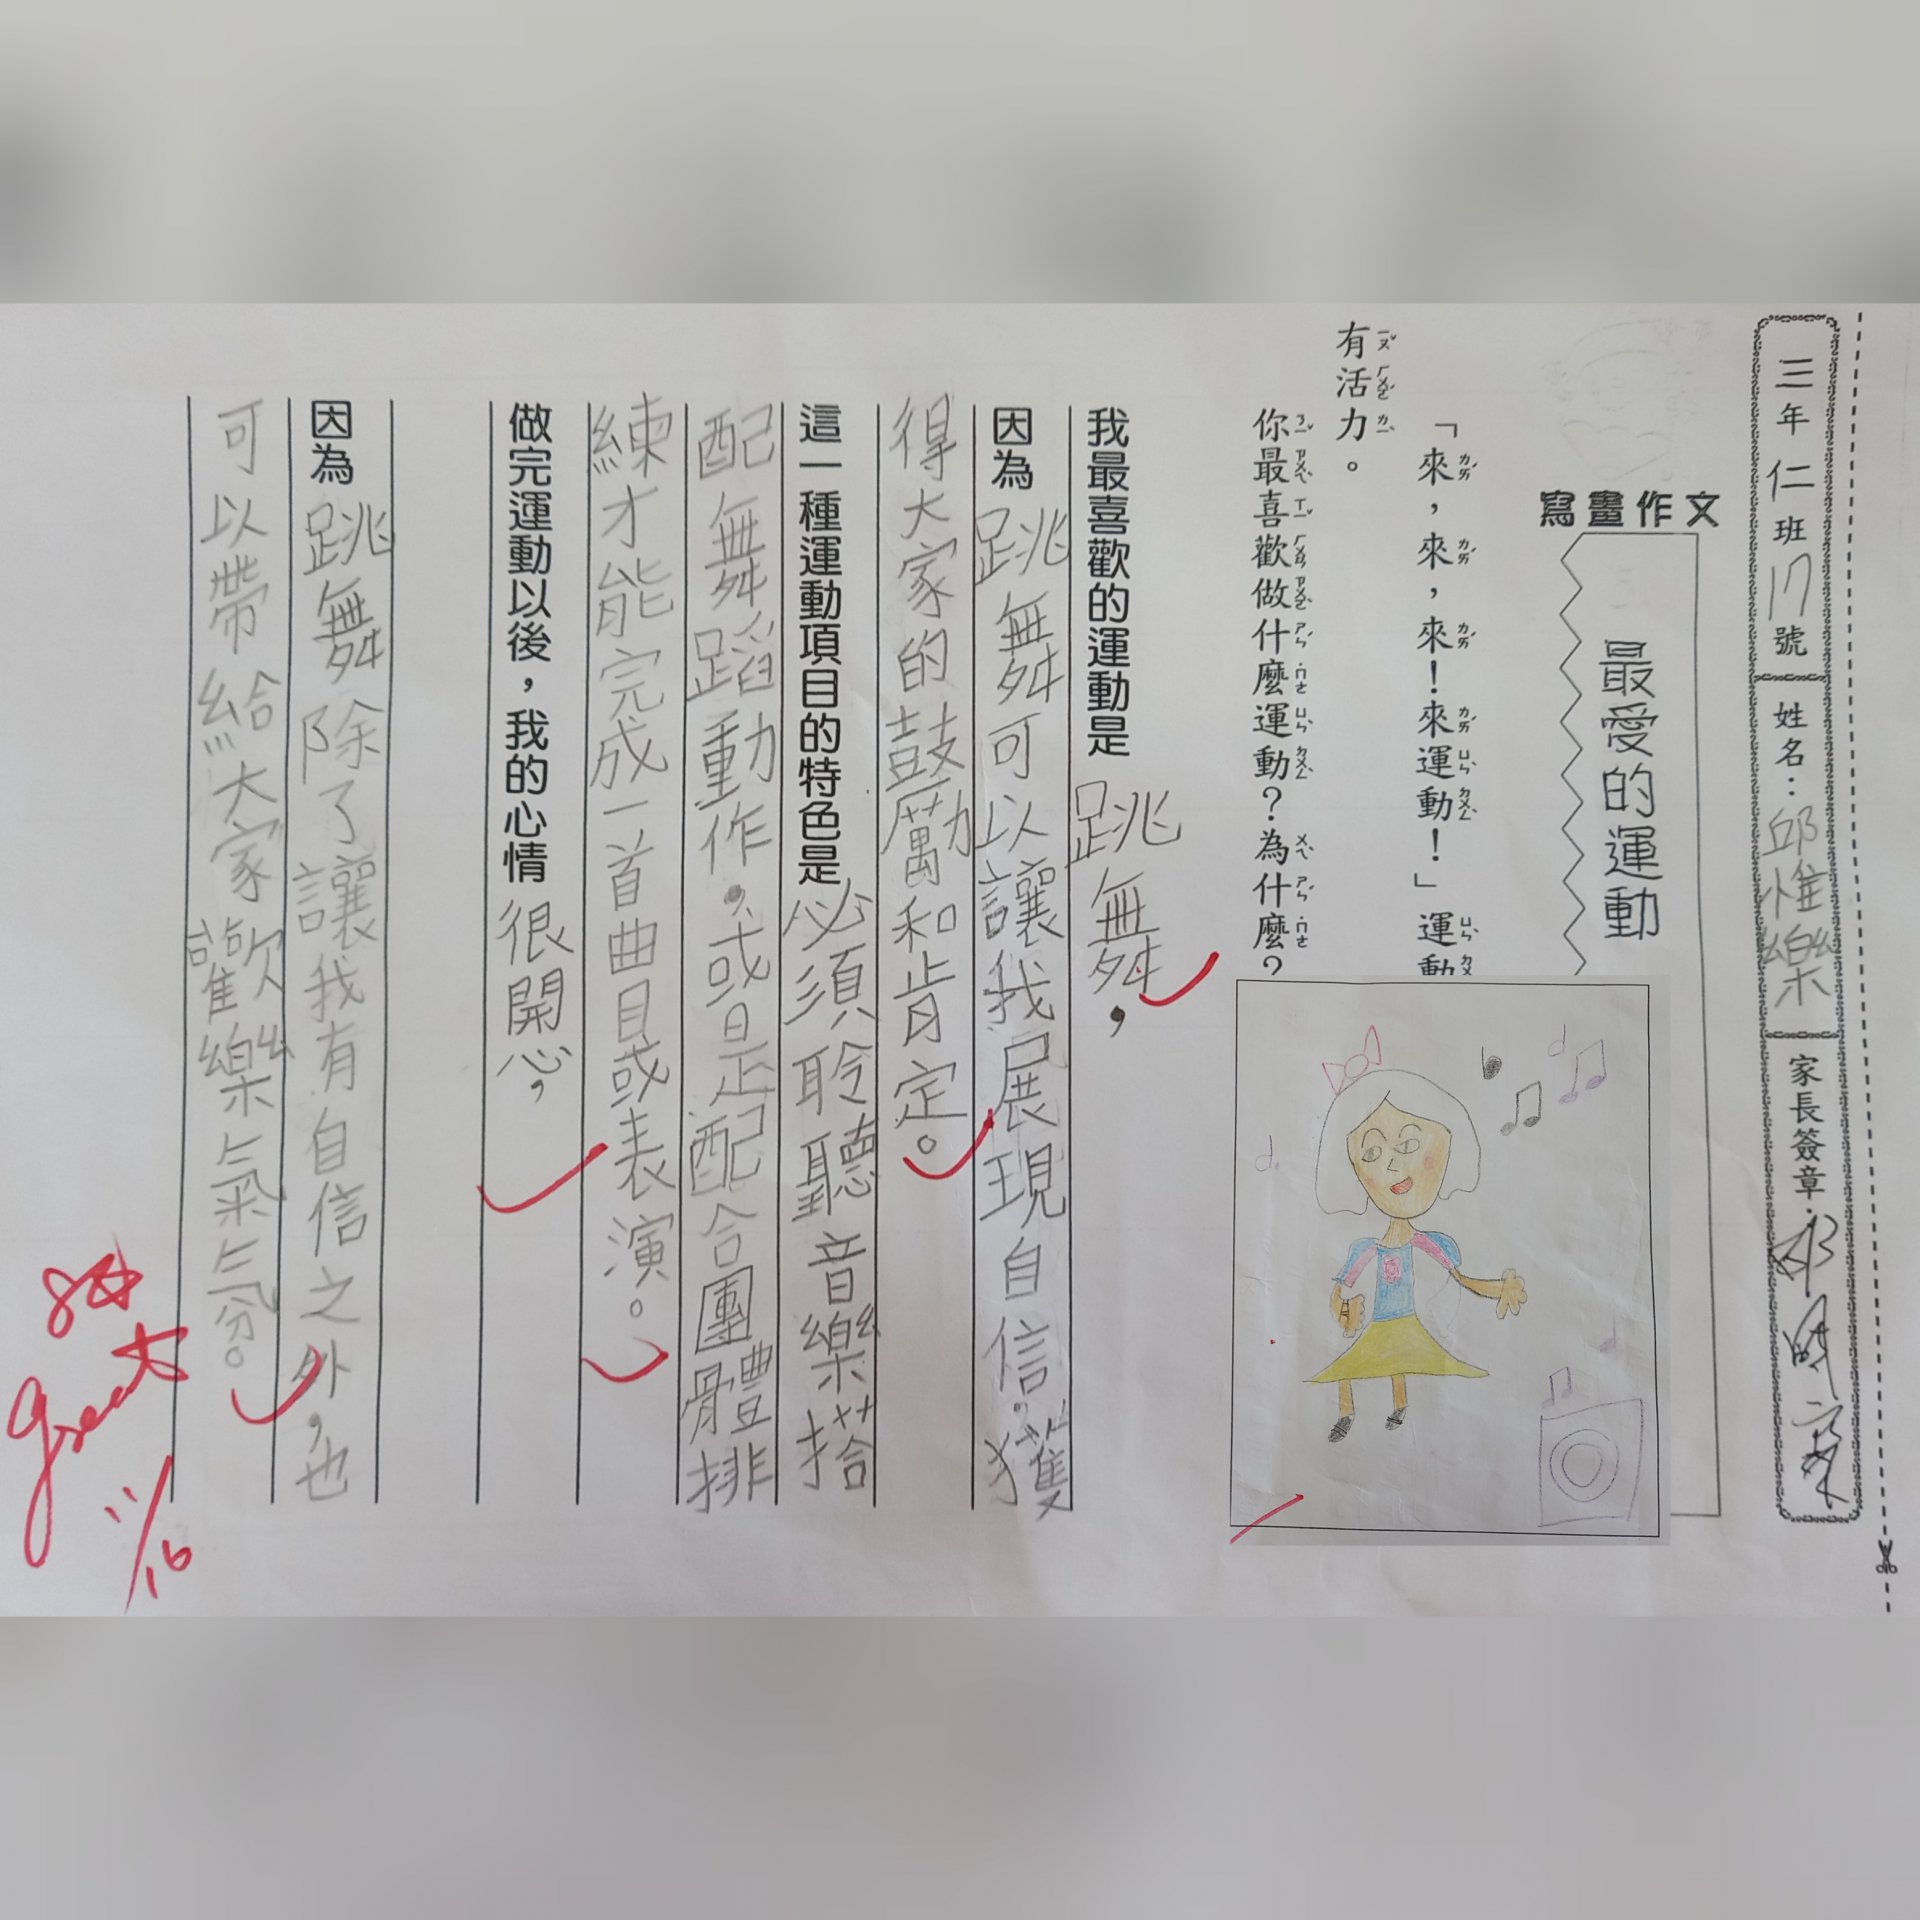 三年仁班17號 姓名：邱惟樂 家長簽章：
寫畫作文
最愛的運動
「來，來，來！來運動！」運動
有活力。
你最喜歡做什麼運動？為什麼？
我最喜歡的運動是跳舞，
因為跳舞可以讓我展現自信。獲
得大家的鼓勵和肯定。
這一種運動項目的特色是必須聆聽音樂搭
配舞蹈動作，或是配合團體排
練才能完成一首曲目或表演。
做完運動以後，我的心情很開心，
因為跳舞除了讓我有自信之外，也
可以帶給大家歡樂氣氛。
Great
11/16